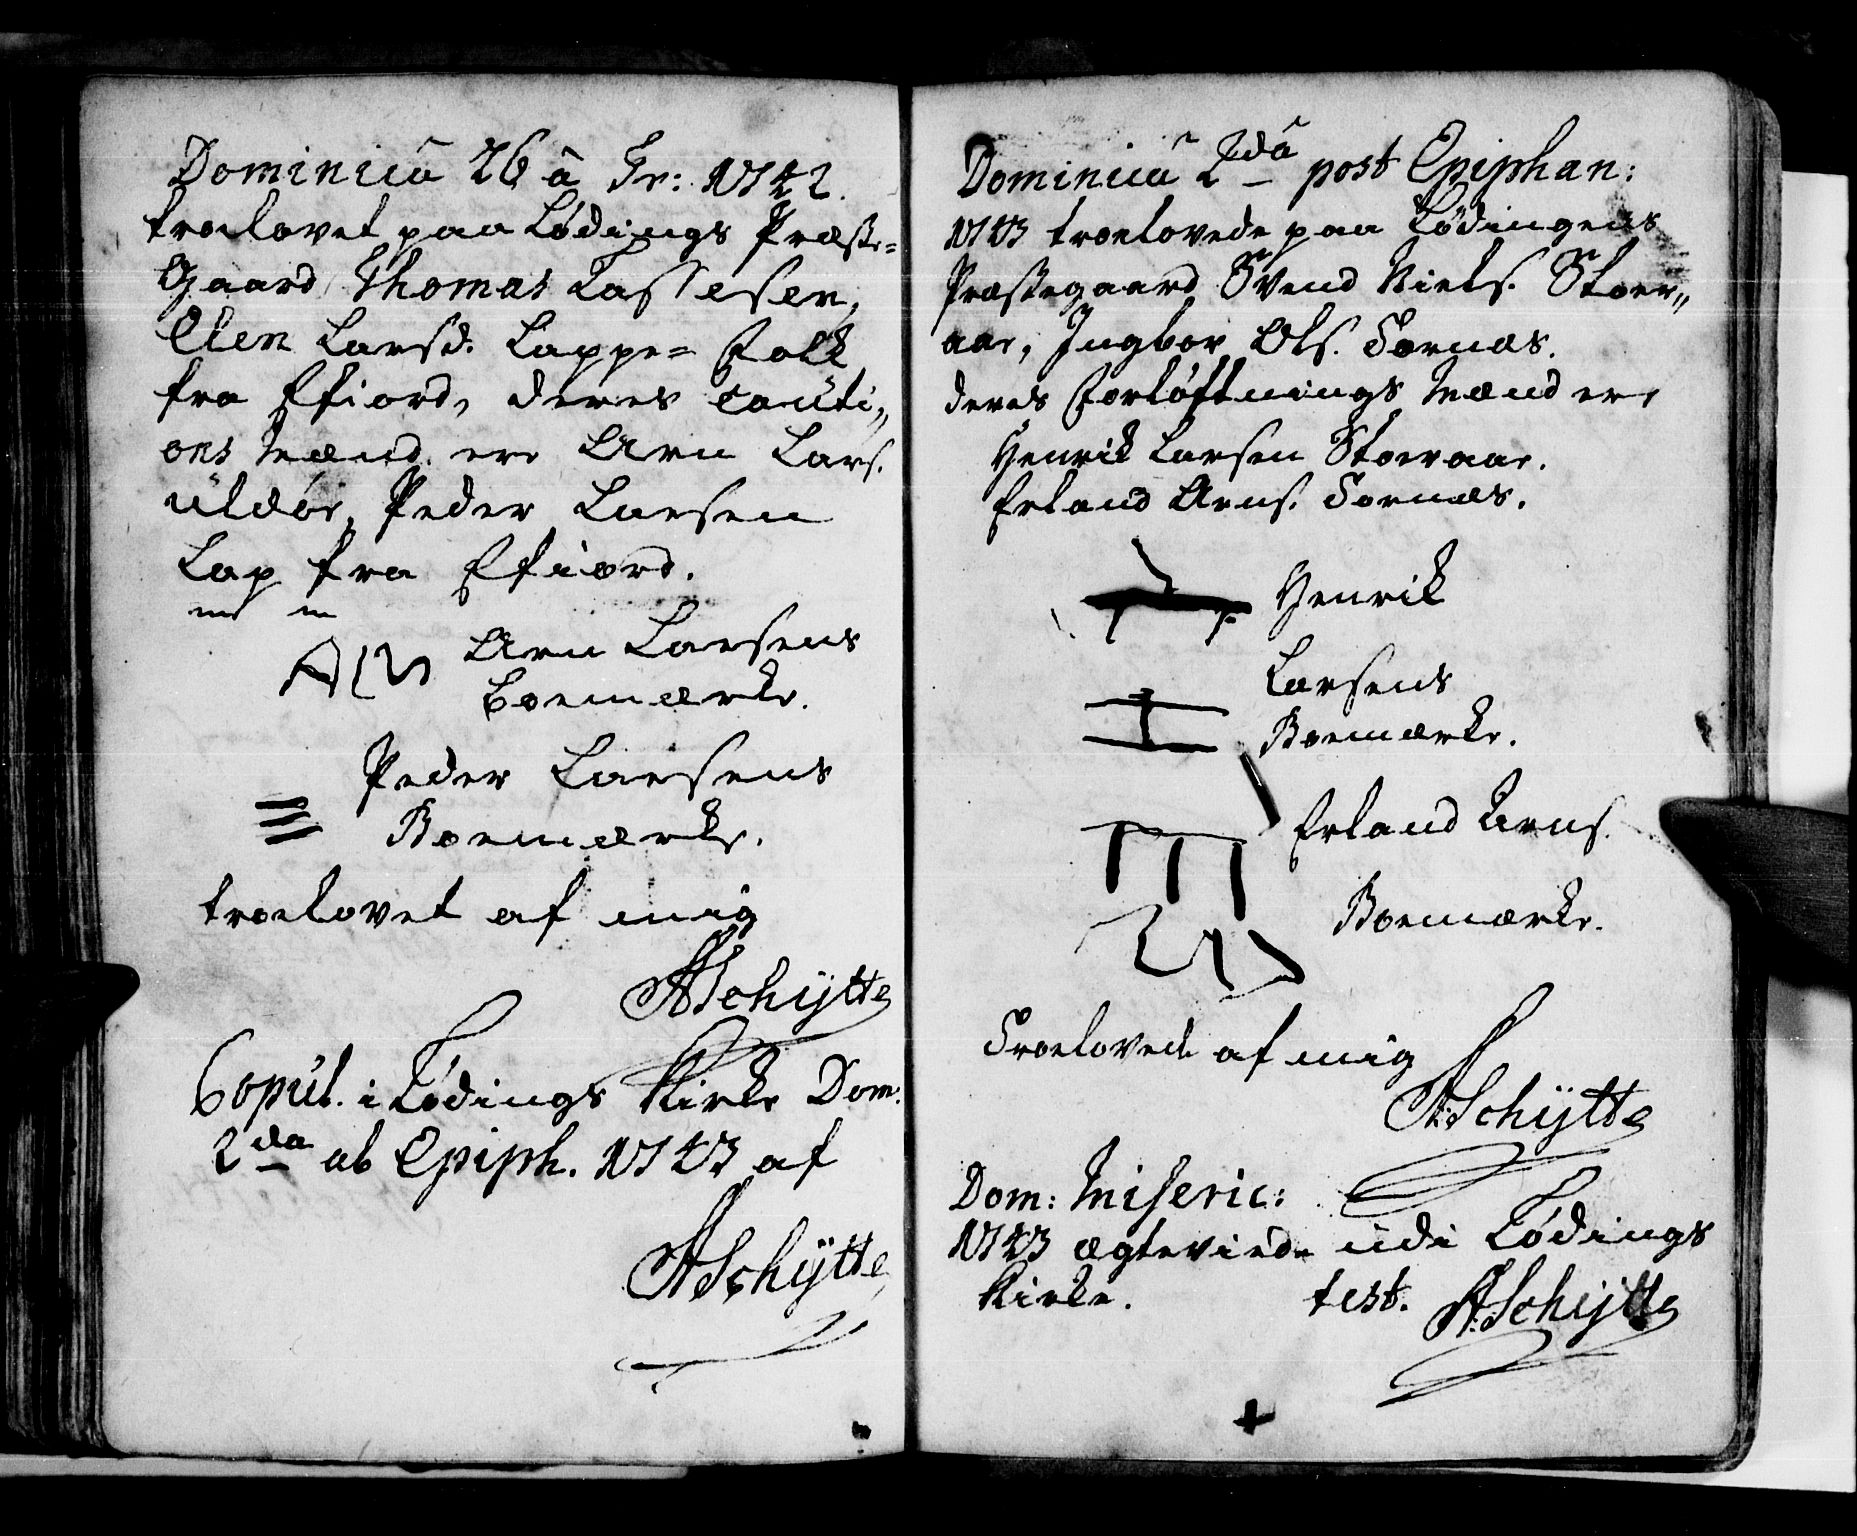 Dominica 26 à Tr: 1742.
troelovet paa Lødings Præste=
Gaard Thomas Lassesen,
Elen Larsd. Lappe= Folk
fra Efiord, deres Cauti„
ons Mænd ere Arn Lars.
Peder Larsen
Lap fra Efiord.
Arn Larsens
Boemærke.
Peder Larsens
Boemærke.
troelovet af mig
ASchÿtte
Copul. i Lødings Kirke Dom.
2da ab Epiph. 1743 af
ASchÿtte
Dominica 2da post Epiphan:
1743 troelovede paa Lødingens
Præstegaard Svend Niels. Stoer„
aae, Ingbor Ols. Tornæs.
deres Forløftnings Mænd er,
Henrik Larsen Stoeraae.
Erland Arns. Tornæs.
Henrik
Larsens
Boemærke.
Erland Arns.
Boemærke.
Troelovede af mig
A:Schÿtte
Dom: Miseric:
1743 ægteviede udi Lødings
Kirke. test. A:Schÿtte